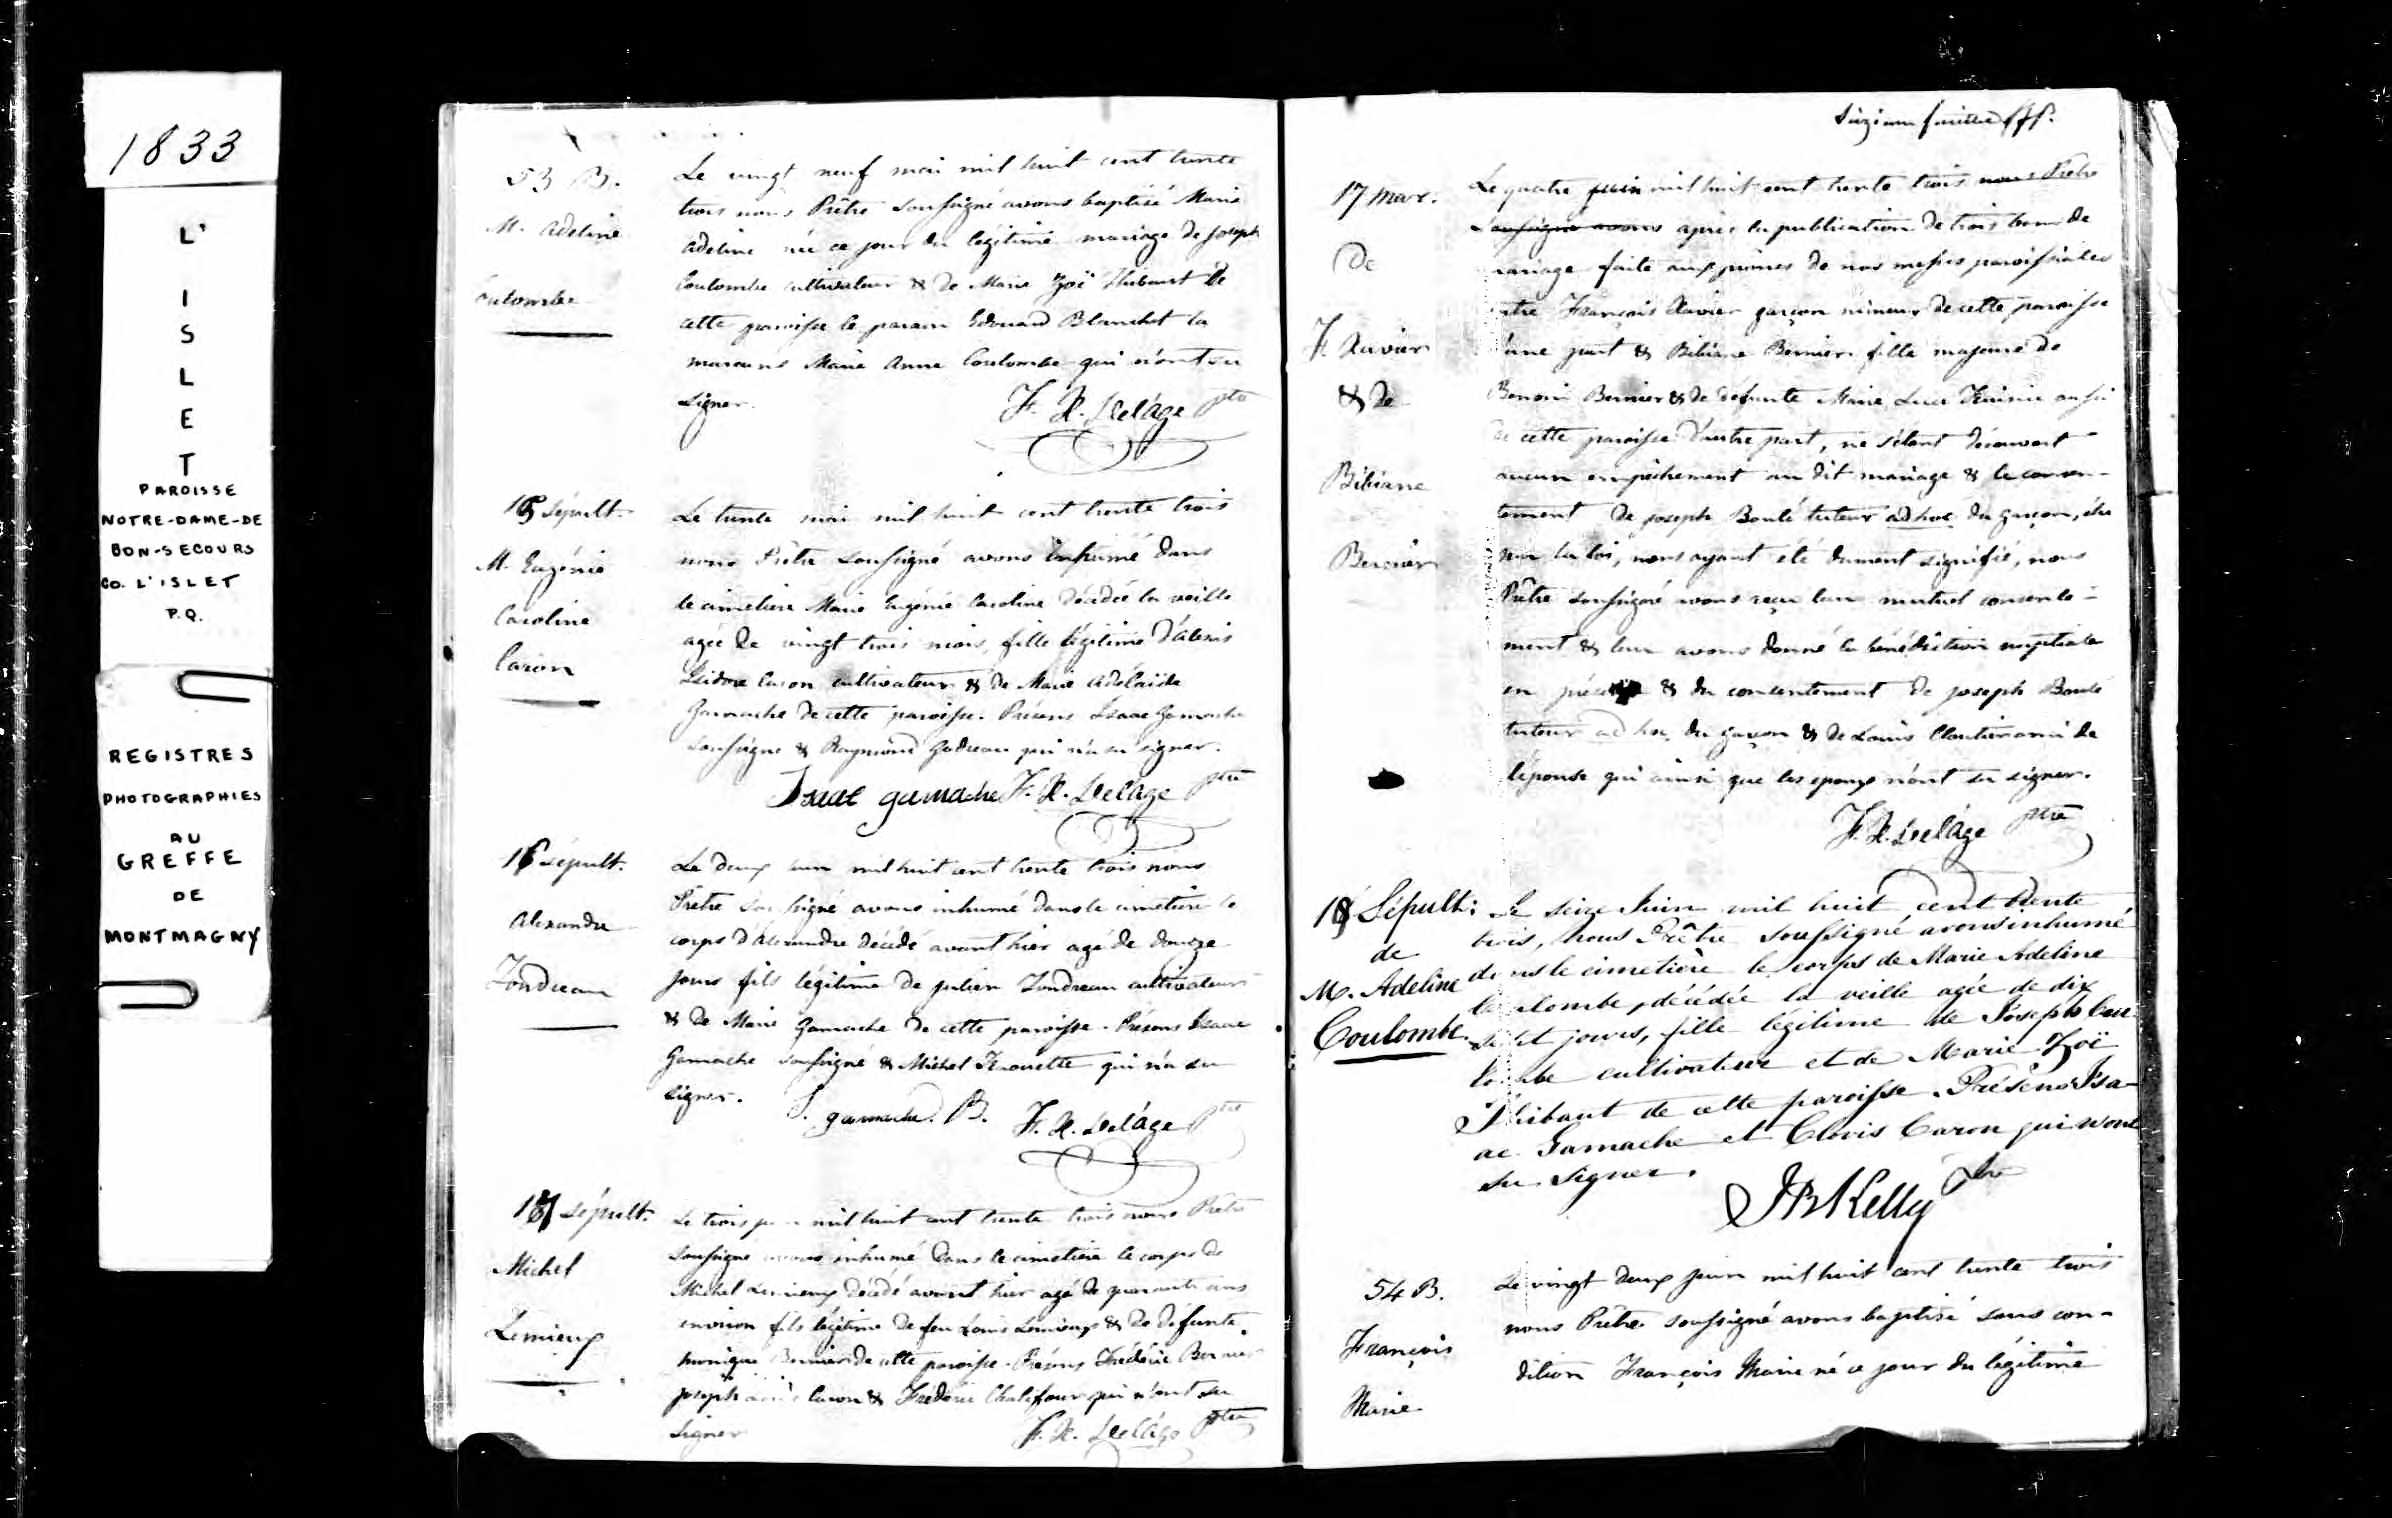 1833
L'
I
S
L
E
T
PAROISSE
NOTRE-DAME-DE
BON-SECOURS
CO. L'ISLET
P.Q.
REGISTRES
PHOTOGRAPHIES
AU
GREFFE
DE
MONTMAGNY
53 B.
M. Adeline
Coulombe
Le vingt neuf mai mil huit cent trente
trois nous Prêtre Soussigné avons baptisé Marie
Adeline née ce jour du légitime mariage de Joseph
Coulombe cultivateur & de Marie Zoë Thibaut de
cette paroisse le parain Edouard Blanchet la
maraine Marie Anne Coulombe qui n'ont su
signer.
F. X. Delâge ptre
15 Sépult.
M. Eugénie
Caroline
Caron
Le trente mai mil huit cent trente trois
nous Prêtre Soussigné avons inhumé dans
le cimetiere Marie Eugénie Caroline décédée la veille
agée de vingt trois mois, fille légitime d'Alexis
Isidore Caron cultivateur & de Marie Adélaïde
Gamache de cette paroisse. Présens Isaac Gamache
soussigné & Raymond Godreau qui n'a su signer.
Isaac gamache F. X. Delâge ptre
16 sépult.
Alexandre
Tondreau
Le deux juin mil huit cent trente trois nous
Prêtre Soussigné avons inhumé dans le cimetiere le
corps d'Alexandre décédé avant hier agé de douze
jours fils légitime de Julien Tondreau cultivateur
& de Marie Gamache de cette paroisse. Présens Isaac
Gamache soussigné & Michel Fraouette qui n'a su
signer.
I. gamache. B. F. X. Delâge ptre
17 sépult.
Michel
Lemieux
Le trois juin mil huit cent trente trois nous Prêtre
Soussigné avons inhumé dans le cimetiere le corps de
Michel Lemieux décédé avant hier agé de quarante ans
environ fils légitime de feu Louis Lemieux & de défunte
Monique Bernier de cette paroisse. Présens Frédéric Bernier
Joseph Caron & Frédéric Chalifour qui n'ont su
signer
F. X. Delâge ptre
17 Mar.
De
F. Xavier
& De
Bibiane
Bernier
Le quatre juin mil huit cent trente trois nous Prêtre
Soussigné avons après la publication de trois bans de
mariage faite aux prones de nos messes paroissiales
entre François Xavier garçon mineur de cette paroisse
d'une part & Bibiane Bernier fille majeure de
Benoni Bernier & de défunte Marie Luce aussi
de cette paroisse d'autre part, ne s'étant découvert
aucun empêchement au dit mariage & le consen-
tement de Joseph Boulé tuteur ad hoc du garçon, élu
par la loi, nous ayant été dument signifié, nous
Prêtre Soussigné avons reçu leur mutuel consente-
ment & leur avons donné la bénédiction nuptiale
en présence & du consentement de Joseph Boulé
tuteur ad hoc du garçon & de Louis Cloutier ami de
l'épouse qui ainsi que les epoux n'ont su signer.
F. X. Delâge ptre
18 Sépult:
de
M. Adeline
Coulombe
Le seize Juin mil huit cent trente
trois, nous Prêtre soussigné avons inhumé
dans le cimetière le corps de Marie Adeline
Coulombe, décédée la veille agée de dix
sept jours, fille légitime de Joseph Cou-
lombe cultivateur et de Marie Zoë
Thibaut de cette paroisse. Présens Isa-
ac Gamache et Clovis Caron qui n'ont
su signer.
JB Kelly Ptre
54 B.
François
Marie
Le vingt deux juin mil huit cent trente trois
nous Prêtre soussigné avons baptisé sous con-
dition François Marie né ce jour du légitime